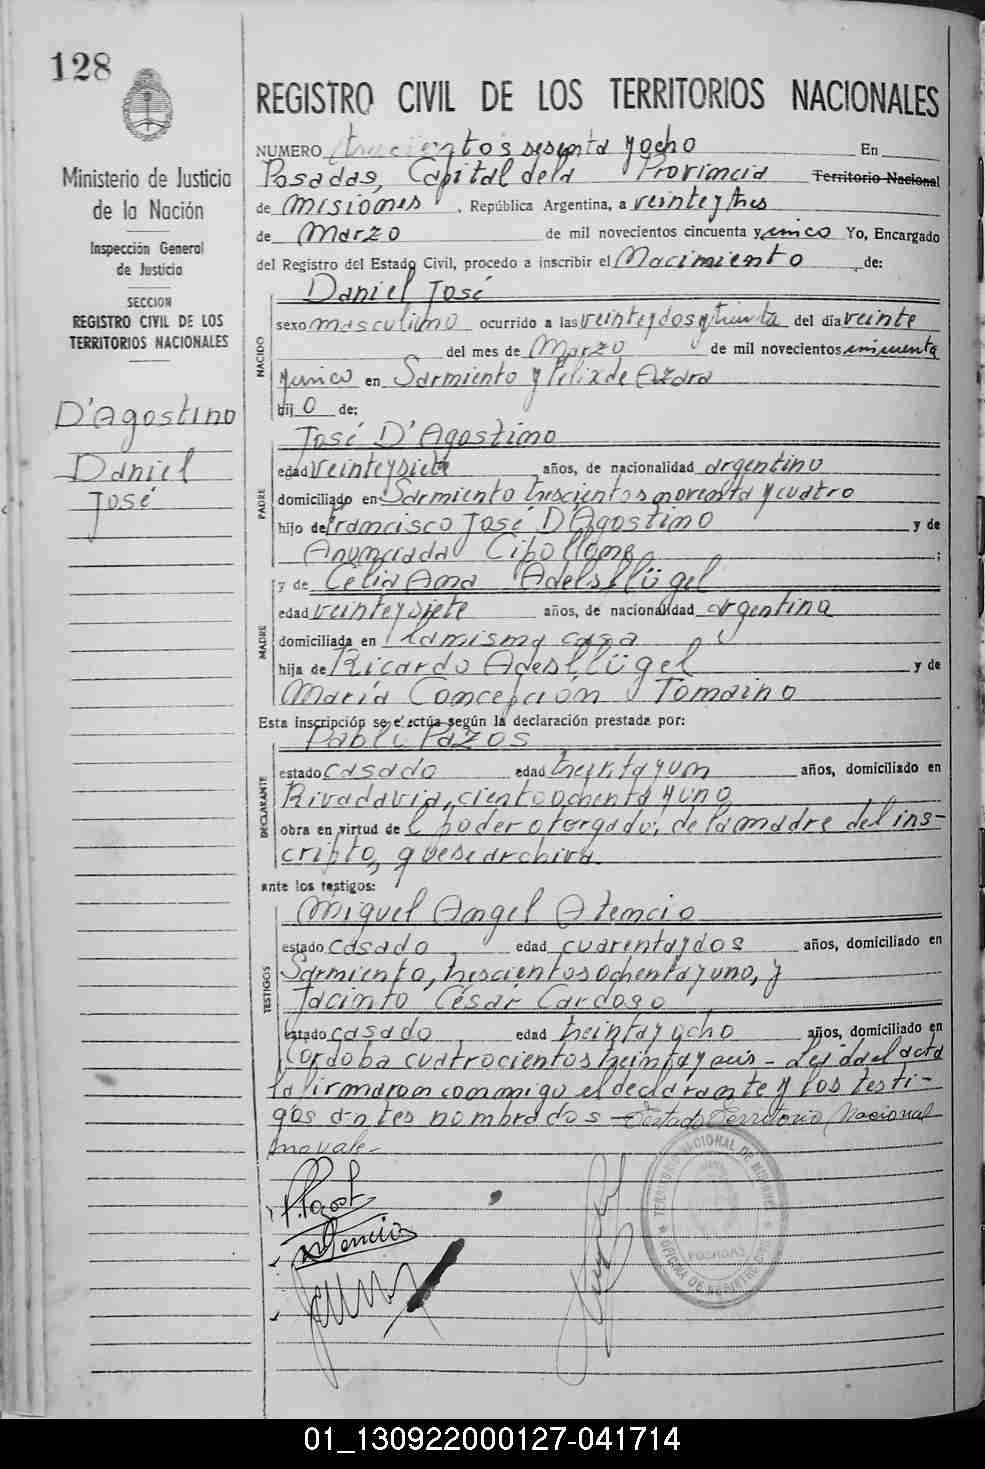 128
REGISTRO CIVIL DE LOS TERRITORIOS NACIONALES
Ministerio de Justicia
de la Nación
Inspección General
de Justicia
SECCION
REGISTRO CIVIL DE LOS
TERRITORIOS NACIONALES
D'Agostino
Daniel
José
NUMERO trescientos sesenta y ocho En
Posadas, Capital de la Provincia Territorio Nacional
de Misiones, República Argentina, a veinte y tres
de Marzo de mil novecientos cincuenta y único Yo, Encargado
del Registro del Estado Civil, procedo a inscribir el Nacimiento de:
NACIDO
Daniel José
sexo masculino ocurrido a las veinte y dos y treinta del día veinte
del mes de Marzo de mil novecientos cincuenta
y unico en Sarmiento y Felix de Azara
hij o de:
PADRE
José D'Agostino
edad veinte y siete años, de nacionalidad argentino
domiciliado en Sarmiento trescientos noventa y cuatro
hijo de Francisco José D'Agostino y de
Anunciada Cipollone;
MADRE
y de Celia Ana Adelsflügel
edad veinte y siete años, de nacionalidad argentina
domiciliada en la misma casa
hija de Ricardo Adesflügel y de
María Concepción Tomaino
Esta inscripción se efectúa según la declaración prestada por:
DECLARANTE
Pablo Pazos
estado casado edad treinta y un años, domiciliado en
Rivadavia, ciento ochenta y uno
obra en virtud de l poder otorgado, de la madre del ins-
cripto, que se archiva.
ante los testigos:
TESTIGOS
Miguel Angel Atencio
estado casado edad cuarenta y dos años, domiciliado en
Sarmiento, trescientos ochenta y uno, y
Jacinto César Cardozo
estado casado edad treinta y ocho años, domiciliado en
Córdoba cuatrocientos treinta y seis - Leída el acta
la firmaron conmigo el declarante y los testi-
gos antes nombrados - Testado Territorio Nacional
no vale -
TERRITORIO NACIONAL DE MISIONES
POSADAS
OFICINA DE REGISTRO CIVIL
01_130922000127-041714